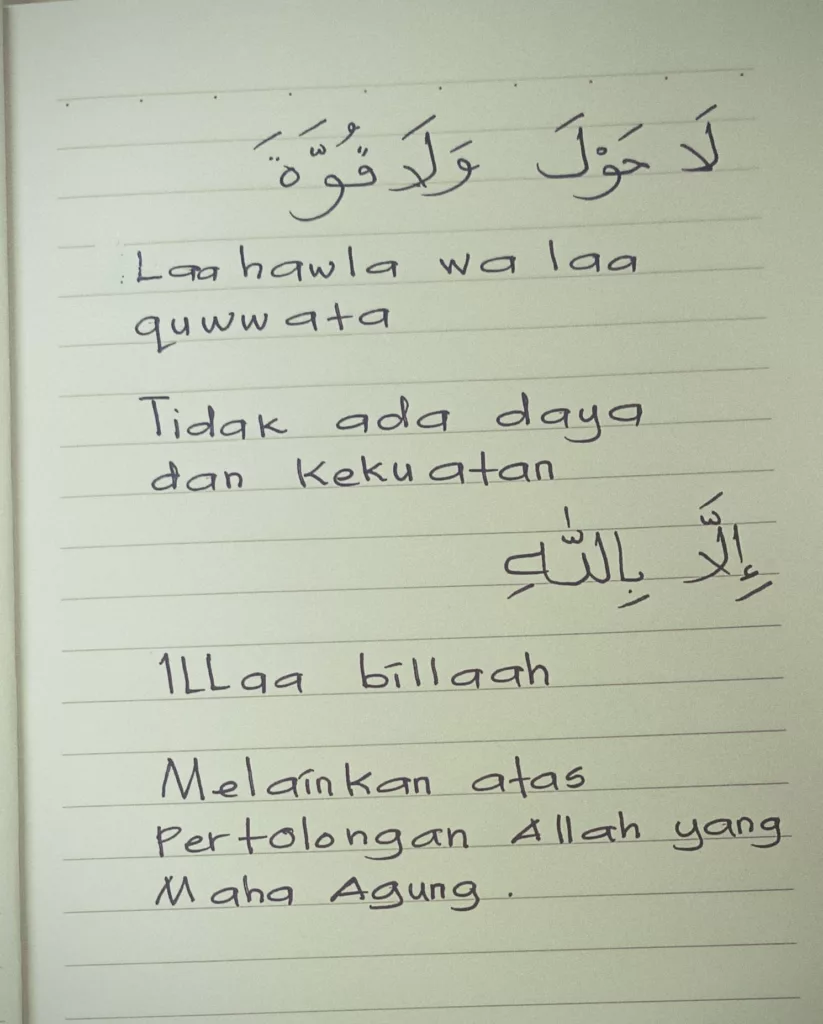 لَا حَوْلَ وَلَا قُوَّةَ
Laa hawla wa laa
quwwata
Tidak ada daya
dan kekuatan
إِلَّا بِاللّٰهِ
ILLaa billaah
Melainkan atas
Pertolongan Allah yang
Maha Agung.